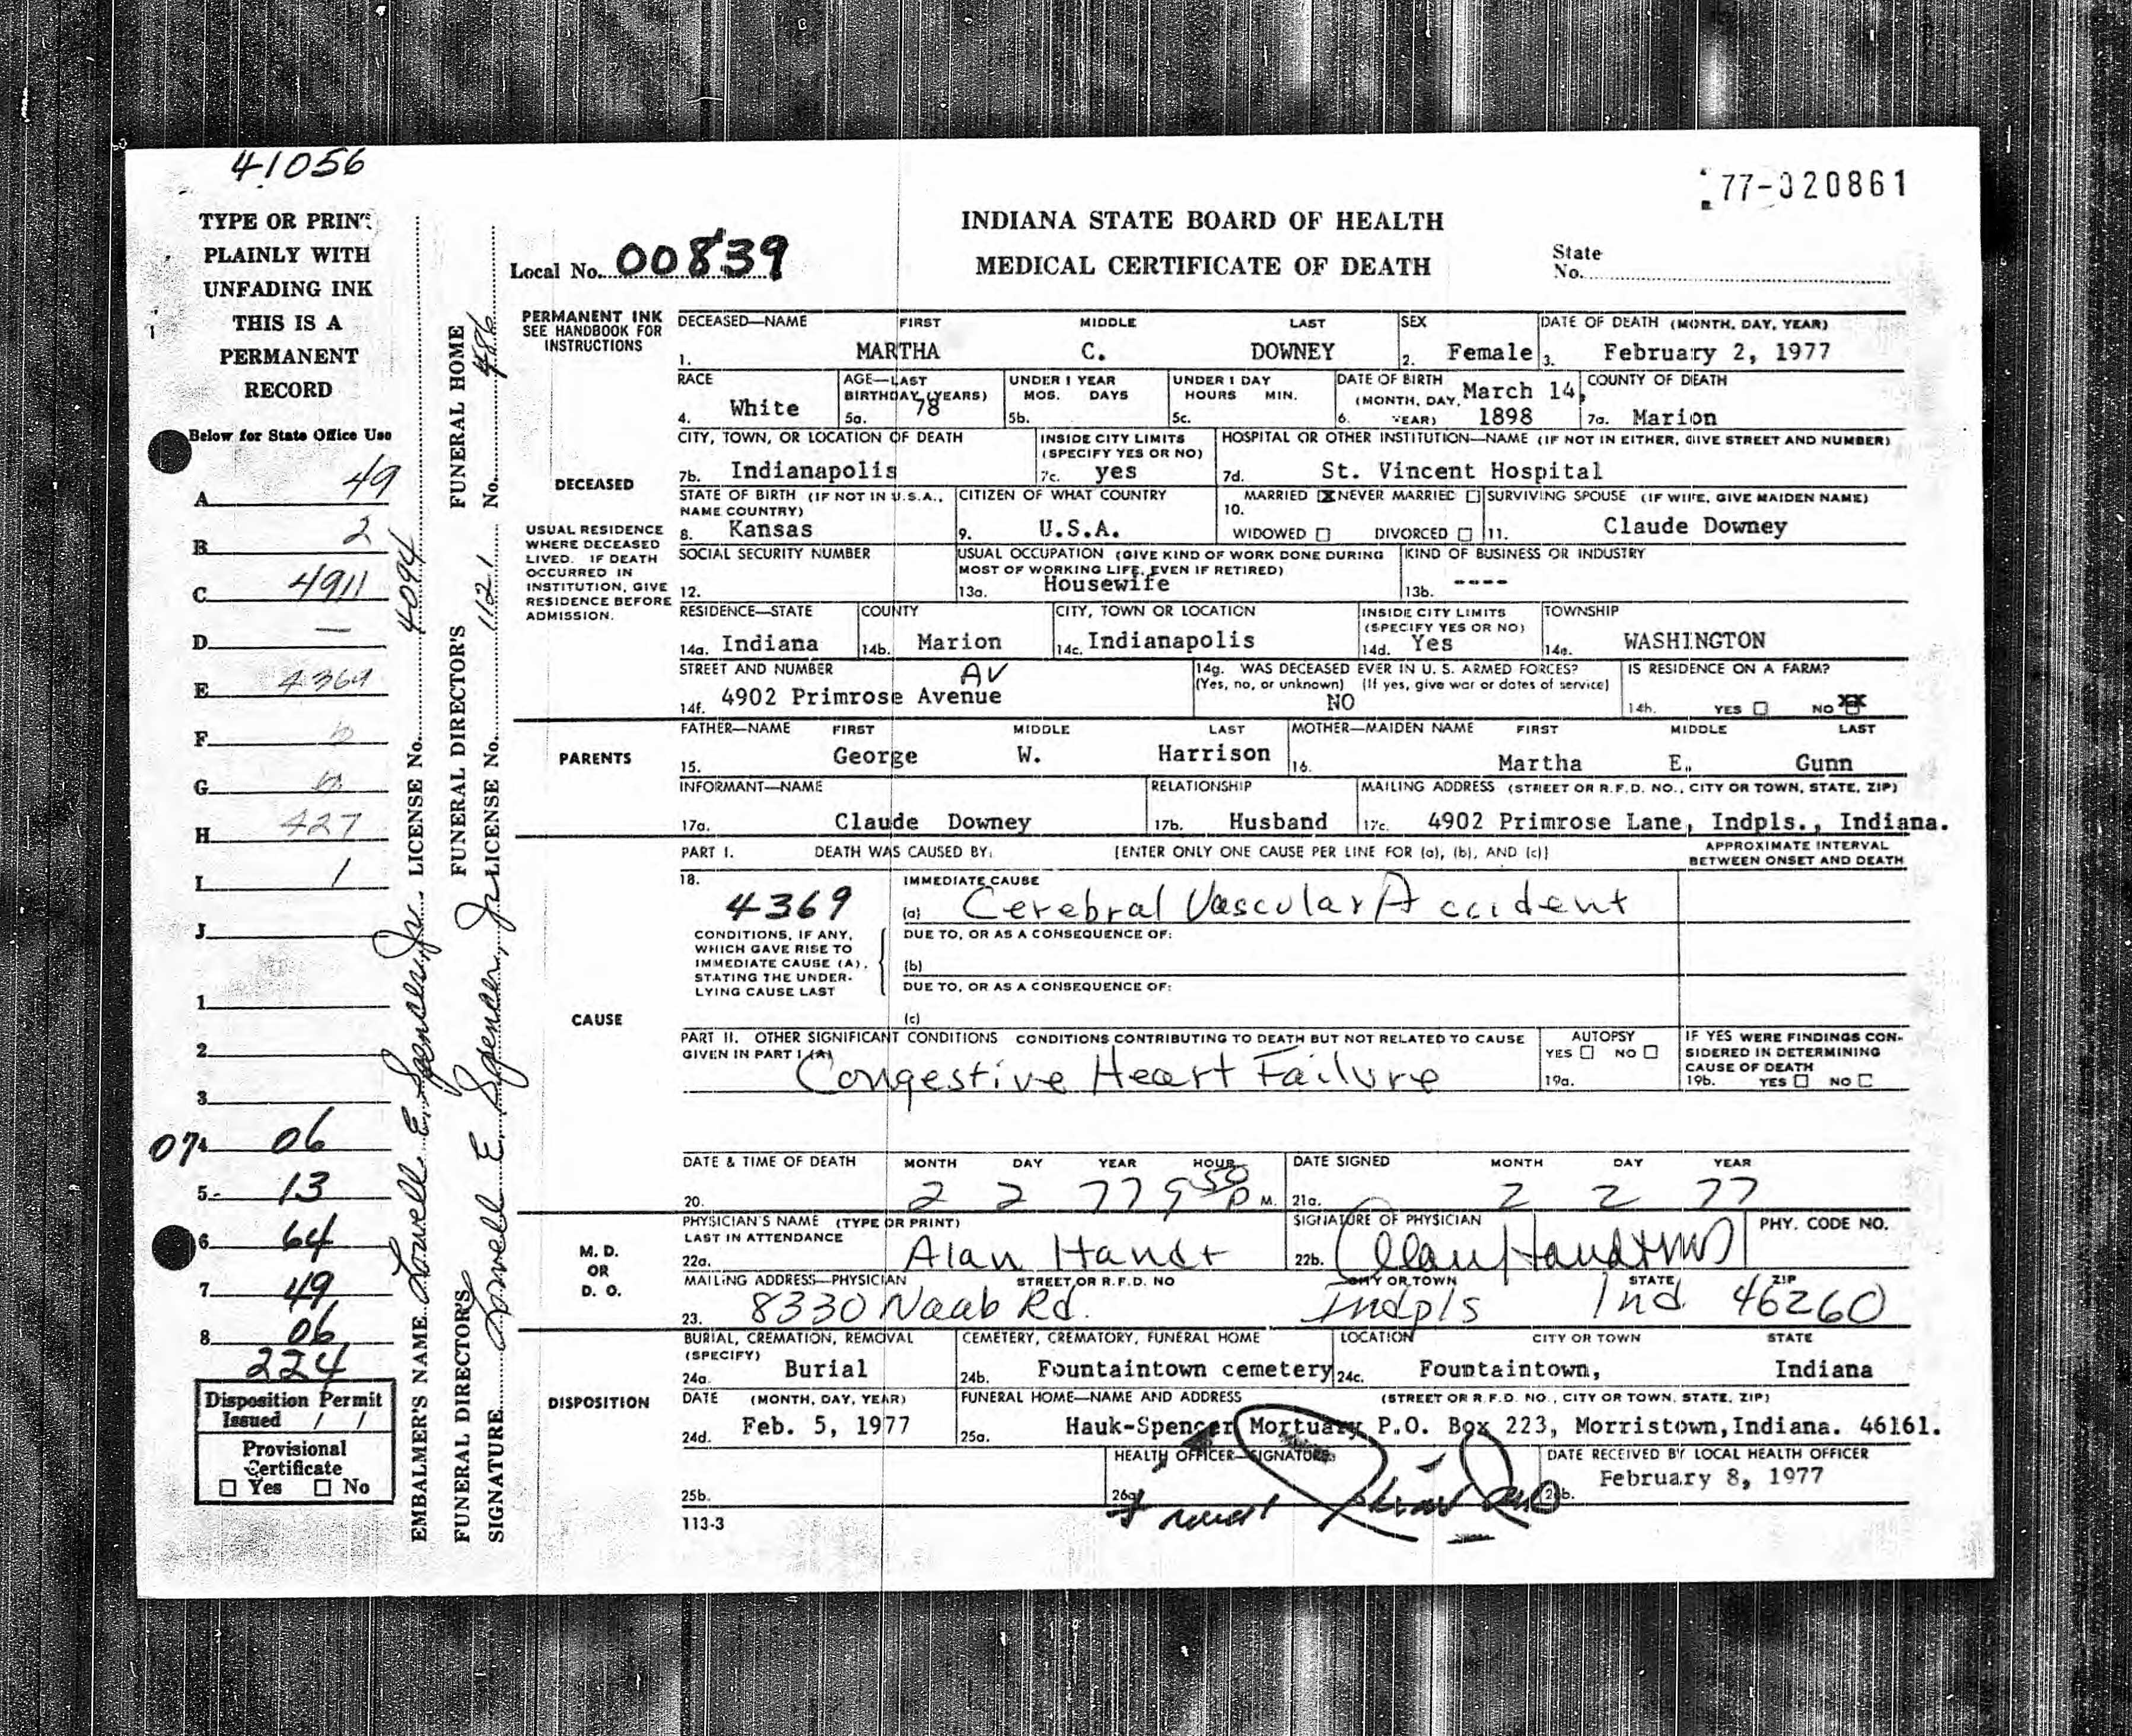 41056
77-020861
TYPE OR PRINT
PLAINLY WITH
UNFADING INK
THIS IS A
PERMANENT
RECORD
Below for State Office Use
A 49
B 2
C 4911
D —
E 4369
F
G
H 427
I 1
J
1
2
3
074 06
5 13
6 64
7 49
8 06
224
Disposition Permit
Issued / /
Provisional
Certificate
☐ Yes ☐ No
EMBALMER'S NAME Lowell E. Spencer, Jr. LICENSE No. 4094
FUNERAL DIRECTOR'S FUNERAL DIRECTOR'S FUNERAL HOME
SIGNATURE Lowell E. Spencer, Jr LICENSE No. 1121 No. 486
INDIANA STATE BOARD OF HEALTH
Local No. 00839 MEDICAL CERTIFICATE OF DEATH State No.
PERMANENT INK
SEE HANDBOOK FOR
INSTRUCTIONS
DECEASED
USUAL RESIDENCE
WHERE DECEASED
LIVED. IF DEATH
OCCURRED IN
INSTITUTION, GIVE
RESIDENCE BEFORE
ADMISSION.
DECEASED—NAME FIRST MIDDLE LAST SEX DATE OF DEATH (MONTH, DAY, YEAR)
1. MARTHA C. DOWNEY 2. Female 3. February 2, 1977
RACE AGE—LAST BIRTHDAY (YEARS) UNDER 1 YEAR MOS. DAYS UNDER 1 DAY HOURS MIN. DATE OF BIRTH (MONTH, DAY, YEAR) COUNTY OF DEATH
4. White 5a. 78 5b. 5c. 6. March 14, 1898 7a. Marion
CITY, TOWN, OR LOCATION OF DEATH INSIDE CITY LIMITS (SPECIFY YES OR NO) HOSPITAL OR OTHER INSTITUTION—NAME (IF NOT IN EITHER, GIVE STREET AND NUMBER)
7b. Indianapolis 7c. yes 7d. St. Vincent Hospital
STATE OF BIRTH (IF NOT IN U.S.A., NAME COUNTRY) CITIZEN OF WHAT COUNTRY MARRIED ☒ NEVER MARRIED ☐ SURVIVING SPOUSE (IF WIFE, GIVE MAIDEN NAME)
8. Kansas 9. U.S.A. 10. WIDOWED ☐ DIVORCED ☐ 11. Claude Downey
SOCIAL SECURITY NUMBER USUAL OCCUPATION (GIVE KIND OF WORK DONE DURING MOST OF WORKING LIFE, EVEN IF RETIRED) KIND OF BUSINESS OR INDUSTRY
12. 13a. Housewife 13b. ----
RESIDENCE—STATE COUNTY CITY, TOWN OR LOCATION INSIDE CITY LIMITS (SPECIFY YES OR NO) TOWNSHIP
14a. Indiana 14b. Marion 14c. Indianapolis 14d. Yes 14e. WASHINGTON
STREET AND NUMBER AV 14g. WAS DECEASED EVER IN U. S. ARMED FORCES? IS RESIDENCE ON A FARM?
(Yes, no, or unknown) (If yes, give war or dates of service)
14f. 4902 Primrose Avenue NO 14h. YES ☐ NO XX
PARENTS
FATHER—NAME FIRST MIDDLE LAST MOTHER—MAIDEN NAME FIRST MIDDLE LAST
15. George W. Harrison 16. Martha E. Gunn
INFORMANT—NAME RELATIONSHIP MAILING ADDRESS (STREET OR R.F.D. NO., CITY OR TOWN, STATE, ZIP)
17a. Claude Downey 17b. Husband 17c. 4902 Primrose Lane, Indpls., Indiana.
CAUSE
PART I. DEATH WAS CAUSED BY: [ENTER ONLY ONE CAUSE PER LINE FOR (a), (b), AND (c)] APPROXIMATE INTERVAL BETWEEN ONSET AND DEATH
18. IMMEDIATE CAUSE
4369 (a) Cerebral Vascular Accident
CONDITIONS, IF ANY,
WHICH GAVE RISE TO
IMMEDIATE CAUSE (A),
STATING THE UNDER-
LYING CAUSE LAST
DUE TO, OR AS A CONSEQUENCE OF:
(b)
DUE TO, OR AS A CONSEQUENCE OF:
(c)
PART II. OTHER SIGNIFICANT CONDITIONS CONDITIONS CONTRIBUTING TO DEATH BUT NOT RELATED TO CAUSE GIVEN IN PART I (A)
Congestive Heart Failure
AUTOPSY
YES ☐ NO ☐
19a.
IF YES WERE FINDINGS CON-
SIDERED IN DETERMINING
CAUSE OF DEATH
19b. YES ☐ NO ☐
DATE & TIME OF DEATH MONTH DAY YEAR HOUR DATE SIGNED MONTH DAY YEAR
20. 2 2 77 9 50 P M. 21a. 2 2 77
M. D.
OR
D. O.
PHYSICIAN'S NAME (TYPE OR PRINT) SIGNATURE OF PHYSICIAN PHY. CODE NO.
LAST IN ATTENDANCE
22a. Alan Handt 22b. Alan Handt MD
MAILING ADDRESS—PHYSICIAN STREET OR R.F.D. NO CITY OR TOWN STATE ZIP
23. 8330 Naab Rd. Indpls Ind 46260
DISPOSITION
BURIAL, CREMATION, REMOVAL (SPECIFY) CEMETERY, CREMATORY, FUNERAL HOME LOCATION CITY OR TOWN STATE
24a. Burial 24b. Fountaintown cemetery 24c. Fountaintown, Indiana
DATE (MONTH, DAY, YEAR) FUNERAL HOME—NAME AND ADDRESS (STREET OR R.F.D. NO., CITY OR TOWN, STATE, ZIP)
24d. Feb. 5, 1977 25a. Hauk-Spencer Mortuary P.O. Box 223, Morristown, Indiana. 46161.
HEALTH OFFICER—SIGNATURE DATE RECEIVED BY LOCAL HEALTH OFFICER
25b. 26a. 26b. February 8, 1977
113-3